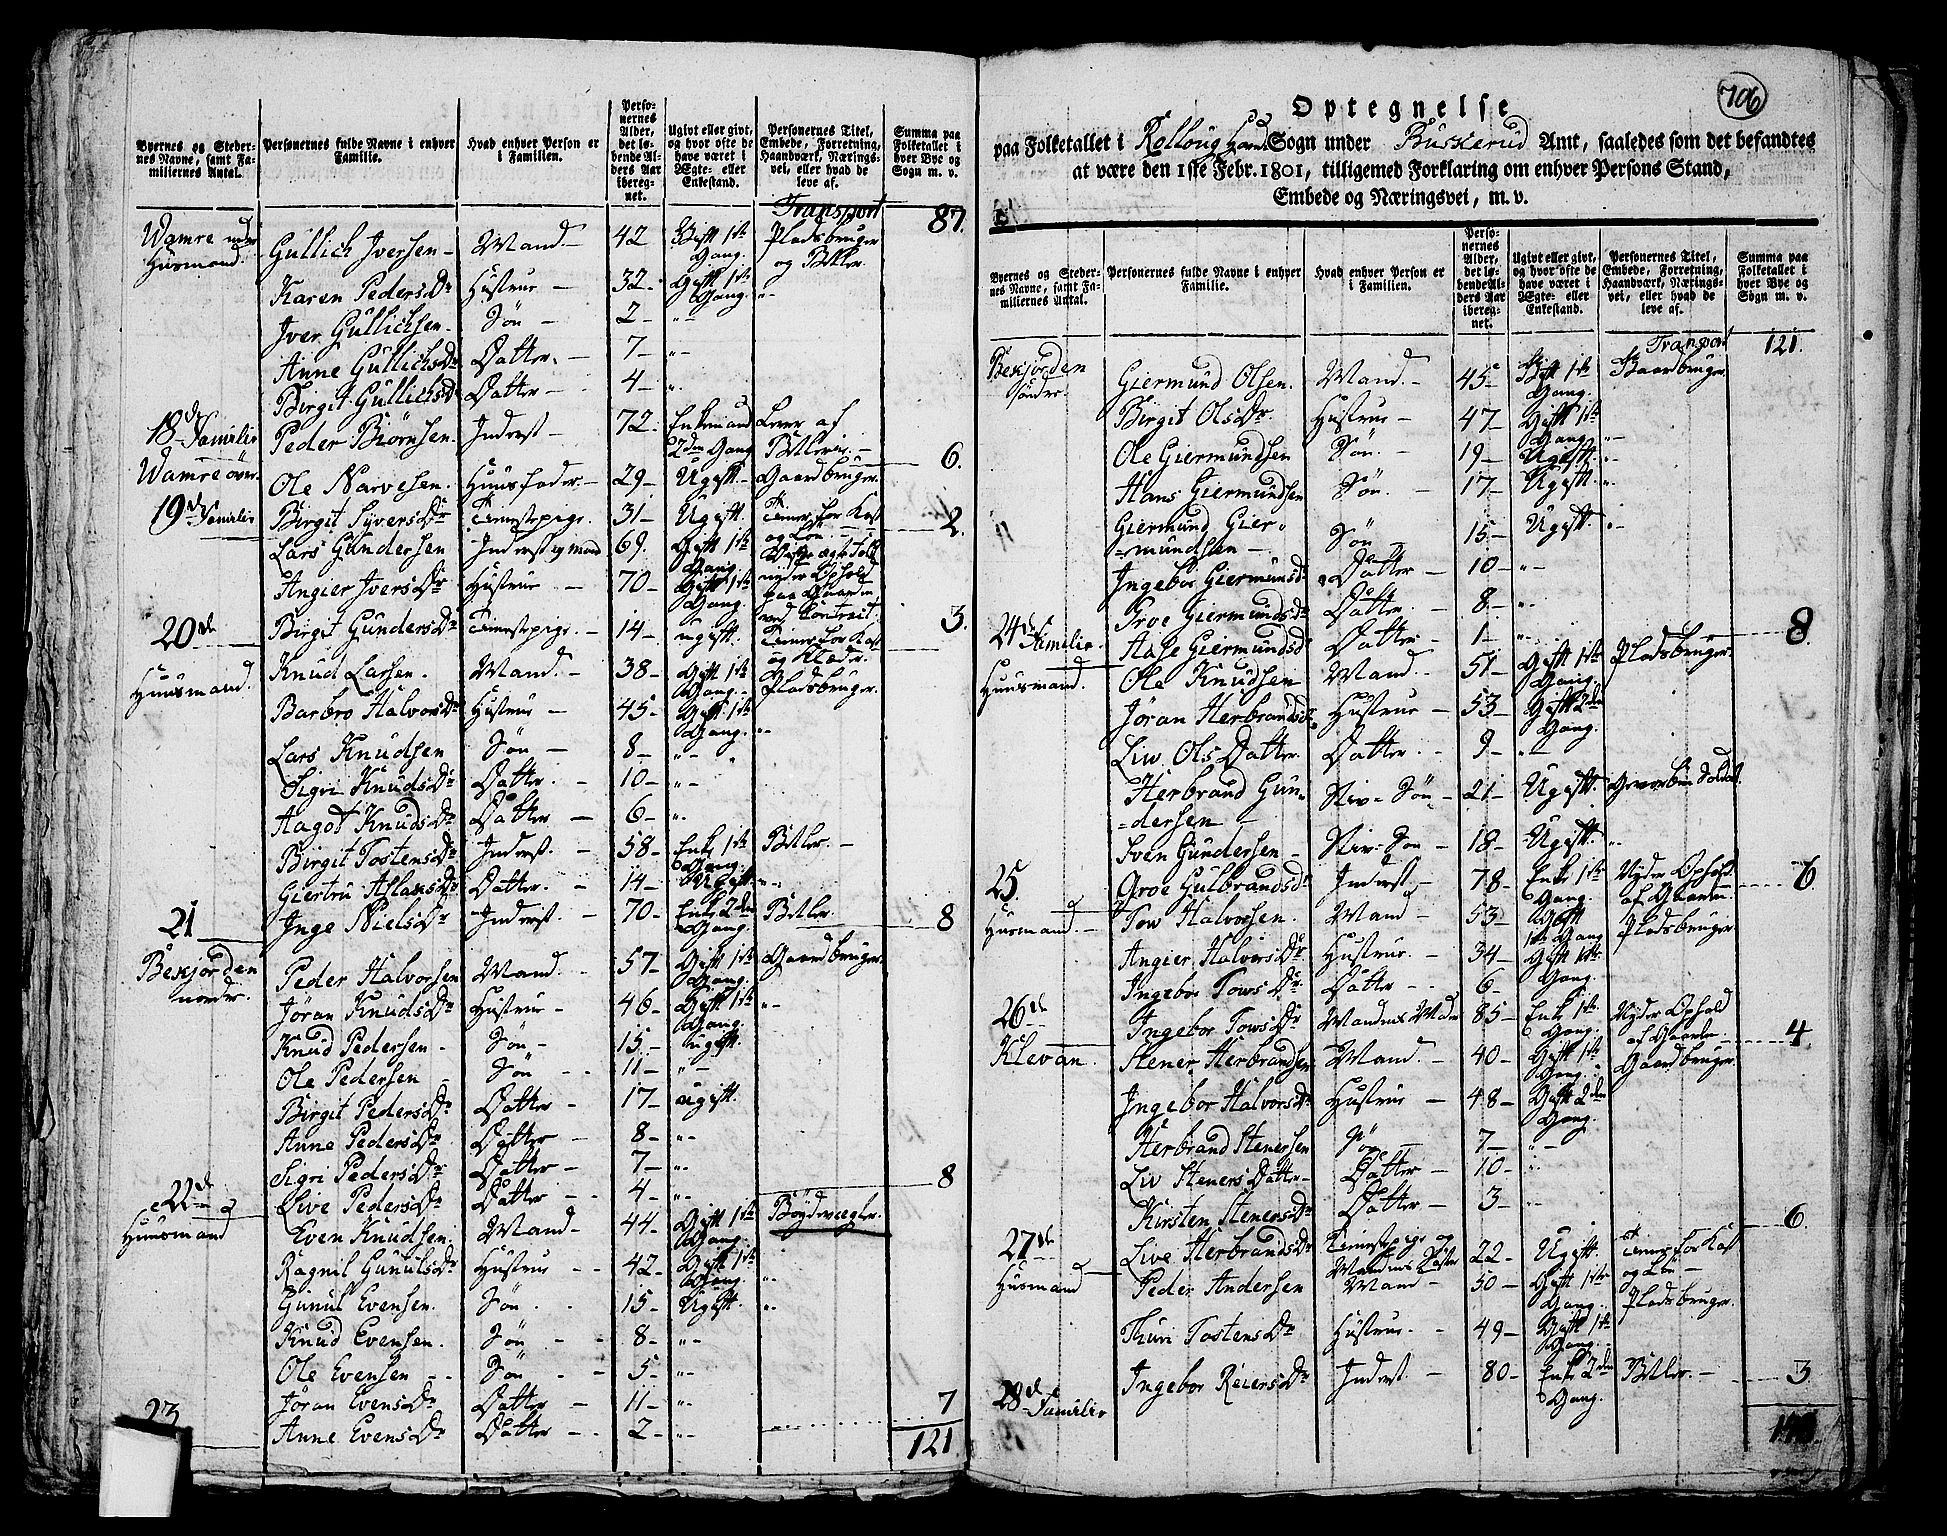 Byernes og Steder-
nes Navne, samt Fa-
miliernes Antal.
Personernes fulde Navne i enhver
Familie.
Hvad enhver Person er
i Familien.
Perso-
nernes
Alder,
det lø-
bende Al-
ders Aar
ibereg-
net.
Ugivt eller givt,
og hvor ofte de
have været i
Ægte- eller
Enkestand.
Personernes Titel,
Embede, Forretning,
Haandværk, Nærings-
vei, eller hvad de
leve af.
Summa paa
Folketallet i
hver Bye og
Sogn m. v.
Transport 87.
Wamre neder Gullich Iversen – Mand – 42 Gift 1ste Pladsbruger
Husmand. Gang. og Betler.
Karen Peders Dr Hustrue – 32 – Gift 1ste
Gang.
Iver Gullichsen – Søn – 2 – "
Anne Gullichs Dr Datter – 7 – "
Birgit Gullichs Dr Datter – 4 – "
18de Familie Peder Biørnsen Inderst – 72. Enkemand Lever af
2den Gang Betlerie – 6.
Wamre över Ole Narvesen. Huusfader – 29 – Ugift – Gaardbruger
19de Familie Birgit Syvers Dr Tienestepige. 31 – Ugift. Tiener for Kost
og Løn. – 2.
Lars Gundersen Inderst og Mand 69. Gift 1ste
Gang.
Angier Ivers Dr Hustrue – 70 – Gift 1ste nyder Ophold
Gang. paa Gaarden
ved Contract 3.
20de Birgit Gunders Dr Tienestepige. – 14 – ugift. Tiener for Kost
og Klæder.
Huusmand. Knud Larsen. Mand. – 38 – Gift 1ste
Gang. Pladsbruger.
Barbro Halvors Dr Hustrue – 45 – Gift 1ste
Gang. "
Lars Knudsen Søn – 8 – "
Sigri Knuds Dr Datter – 10 – "
Aagot Knuds Dr Datter – 6 – "
Birgit Tostens Dr Inderst. – 58 – Enke 1ste Betler. –
Gang.
Giertru Aslaks Dr Datter. – 14 – Ugift. "
21 Inge Niels Dr Inderst. – 70 – Enke 2den Betler 8
Gang.
Beskjorden Peder Halvorsen Mand. – 57 – Gift 1ste Gaardbruger
norder. Gang.
Jöran Knuds Dr Hustrue – 46 – Gift 1ste "
Gang.
Knud Pedersen – Søn – 15 – ugift.
Ole Pedersen – Søn – 11 – "
Birgit Peders Dr Datter – 17 – ugift.
Anne Peders Dr Datter – 8 – "
Sigri Peders Dr Datter – 7 – "
22de Live Peders Dr Datter – 4 – " 8
Huusmand Even Knudsen. Mand – 44 – Gift 1ste
Gang.
Ragnil Gunuls Dr Hustrue – 42 – Gift 1ste
Gang. "
Gunul Evensen. Søn – 15 – Ugift. "
Knud Evensen. Søn – 8 – "
Ole Evensen – Søn – 5 – "
Jöran Evens Dr Datter – 11 – "
23 Anne Evens Dr Datter – 2 – " 7
121.
706
Optegnelse
paa Folketallet i Rolloug Sogn under Buskerud Amt, saaledes som det befandtes
at være den 1ste Febr. 1801, tilligemed Forklaring om enhver Persons Stand,
Embede og Næringsvei, m. v.
Byernes og Steder-
nes Navne, samt Fa-
miliernes Antal.
Personernes fulde Navne i enhver
Familie.
Hvad enhver Person er
i Familien.
Perso-
nernes
Alder,
det lø-
bende Al-
ders Aar
ibereg-
net.
Ugivt eller givt,
og hvor ofte de
have været i
Ægte- eller
Enkestand.
Personernes Titel,
Embede, Forretning,
Haandværk, Nærings-
vei, eller hvad de
leve af.
Summa paa
Folketallet i
hver Bye og
Sogn m. v.
Transport 121.
Beskjorden Giermund Olsen. Mand. – 45 – Gift 1ste Gaardbruger.
sönder. Gang.
Birgit Ols Dr Hustrue – 47 – Gift 1ste
Gang. "
Ole Giermundsen Søn. – 19 – Ugift. "
Hans Giermundsen Søn. – 17 – Ugift. "
Giermund Gier-
mundsen – Søn – 15 – Ugift. "
Ingebor Giermunds Dr Datter – 10 – "
Groe Giermunds Dr Datter. – 8 – "
24de Familie. Aase Giermunds Dr Datter – 1 – " 8
Huusmand. Ole Knudsen Mand – 51 – Gift 1ste Pladsbruger.
Gang.
Jöran Herbrands Dr Hustrue – 53 – Gift 2den
Gang.
Liw Ols Datter Datter – 9 – "
Herbrand Gun-
dersen – Stiv-Søn – 21 – Ugift. Soldat.
Sven Gundersen – Stiv-Søn – 18 – Ugift. "
25. Groe Gulbrands Dr Inderst – 78 – Enke 1ste Nyder Ophold 6
Gang. af Gaarden
Husmand. – Tow Halvorsen. Mand – 53 – Gift Pladsbruger
1ste Gang
Angier Halvors Dr Hustrue. – 34 – Gift 1ste
Gang.
Ingebor Tows Dr Datter – 6 –
26de Ingebor Tows Dr Mandens Moder 85 – Enke 1ste Nyder Ophold
Gang. af Gaarden 4
Klevan. Stener Herbrandsen Mand. – 40 – Gift 1ste Gaardbruger.
Gang.
Ingebor Halvors Dr Hustrue – 48 – Gift 2den
Gang.
Herbrand Stenersen Søn – 7 – "
Liv Steners Datter – Datter – 10 – "
Kirsten Steners Dr Datter – 3 – " 6.
27de Live Herbrands Dr Tienestepige og 22 – Ugift. Tiener for Kost
Mandens Søster og Løn –
Husmand Peder Andersen Mand – 50 – Gift 1ste
Gang. Pladsbruger.
Thuri Tostens Dr Hustrue. – 49 – Gift 1ste
Gang.
28de Familie Ingebor Reiers Dr Inderst – 80 – Enke 2den Betler. – 3
Gang.
148.